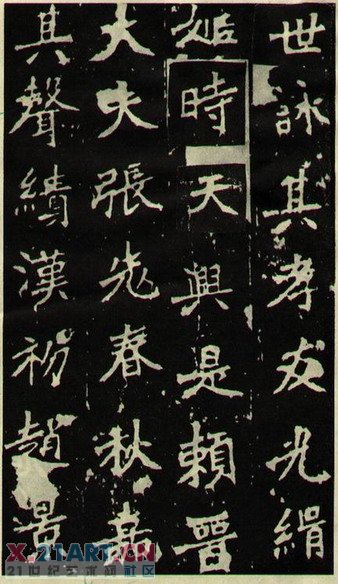 世詠其孝友光緝
姬時天興是賴晉
大夫張老春秋嘉
其聲績漢初趙景
21ART.CN
21世纪艺术网社区